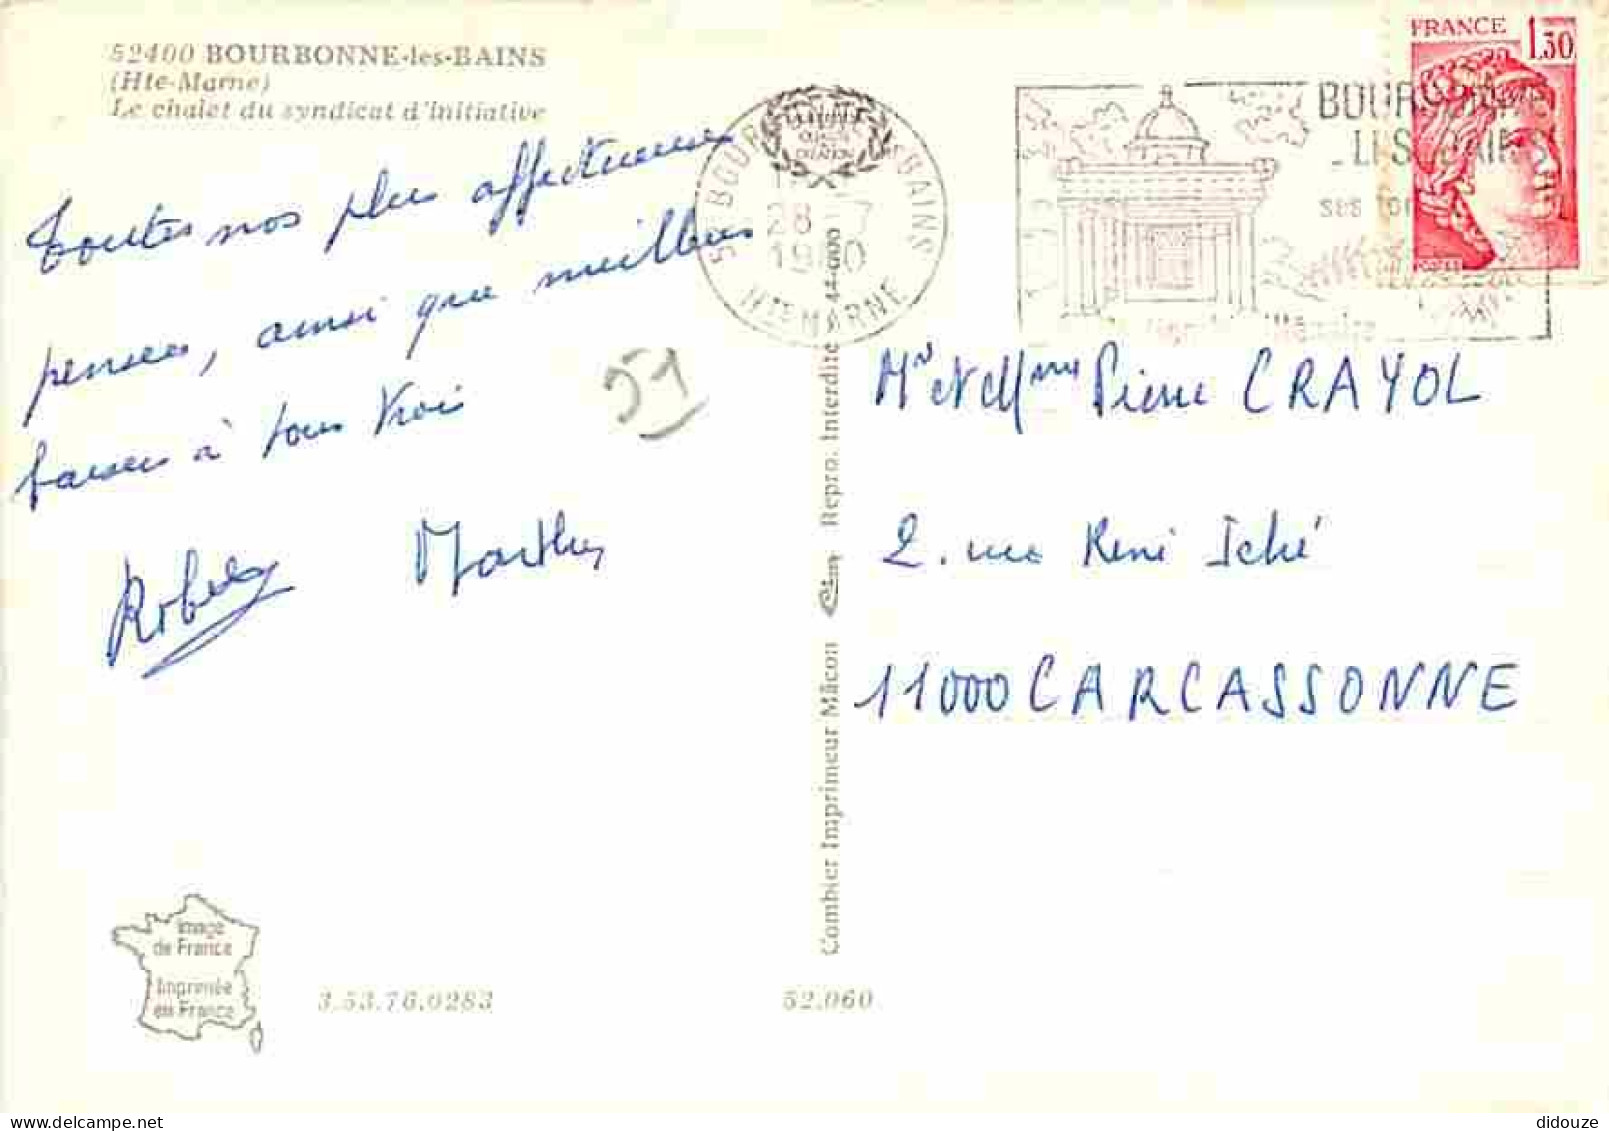 52400 BOURBONNE-les-BAINS
(Hte-Marne)
Le chalet du syndicat d'initiative
Toutes nos plus affectueuses
pensées, ainsi que meilleurs
baisers à tous trois
Robert Marthe
51
FRANCE 1,30
BOURBONNE
LES BAINS
SES
28 7
1980
HTE MARNE
Mr et Mme Pierre CRAYOL
2. rue René Iché
11000 CARCASSONNE
Combier Imprimeur Mâcon Repro. Interdite
Image
de France
Imprimée
en France
3.53.76.0283
52.060
didouze